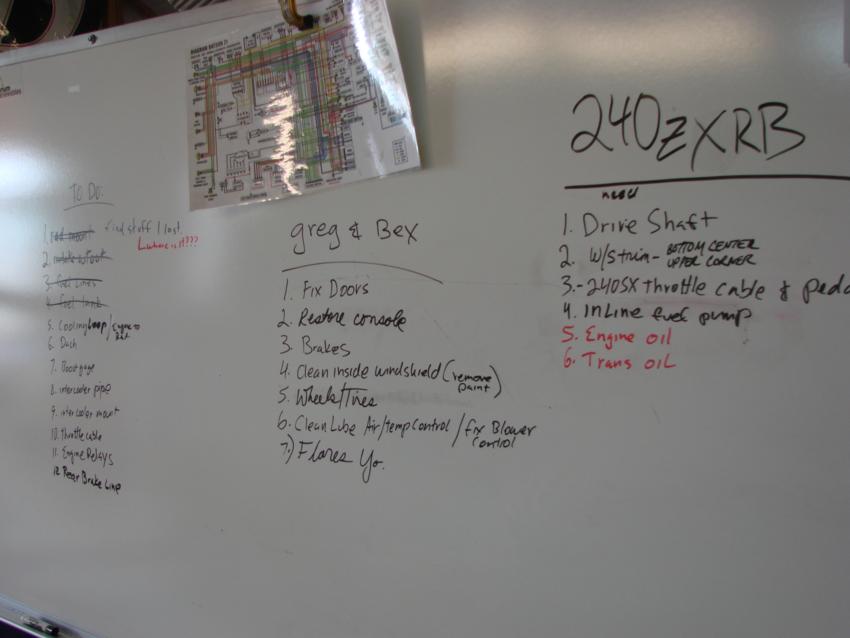 DIAGRAM DATSUN Z
TO DO:
1. rad mount find stuff I lost
where is it???
2.
3. fuel lines
4. fuel tank
5. Cooling Loop / Engine to Rad
6. Dash
7. Boost gage
8. intercooler pipe
9. intercooler mount
10. throttle cable
11. Engine Relays
12. Rear Brake Line
greg & Bex
1. Fix Doors
2. Restore console
3. Brakes
4. Clean inside windshield (remove paint)
5. Wheels/Tires
6. Clean Lube Air/temp Control / fix Blower control
7.) Flares Yo.
240zXRB
need
1. Drive Shaft
2. W/Strip - BOTTOM CENTER
UPPER CORNER
3. - 240SX throttle cable & peda
4. InLine fuel pump
5. Engine oil
6. Trans oil